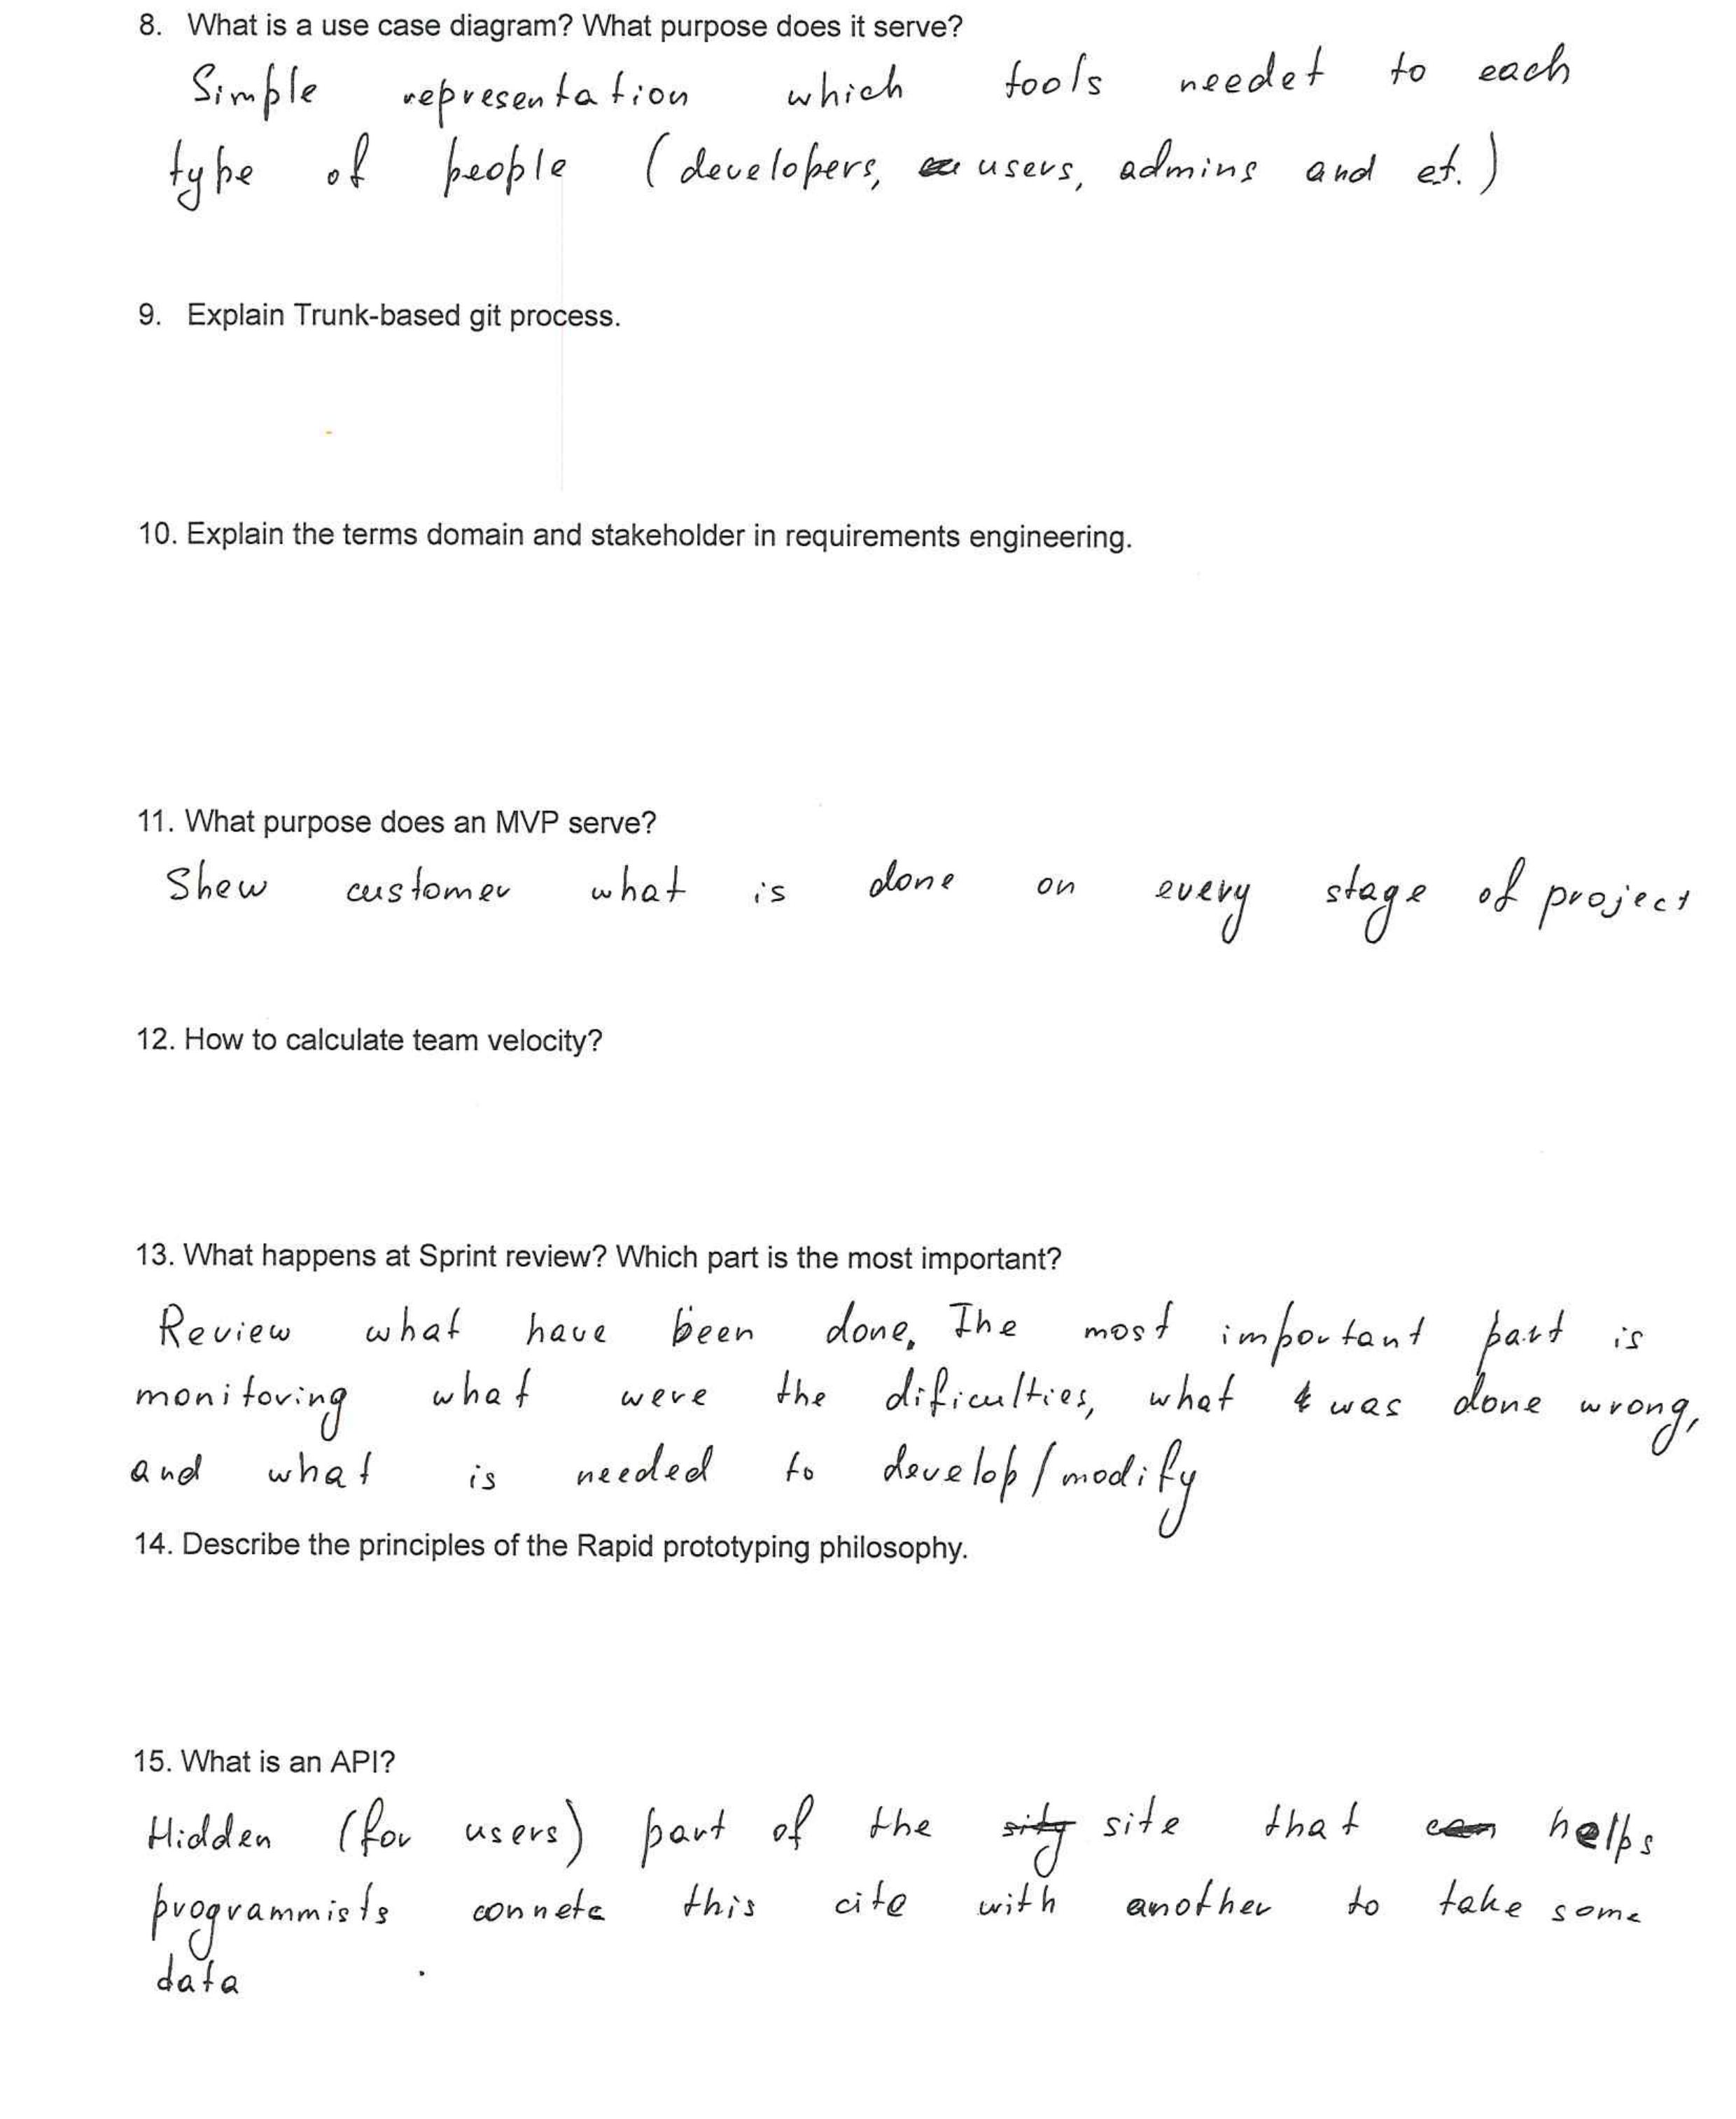 8. What is a use case diagram? What purpose does it serve?
Simple representation which tools needet to each
type of people (developers, users, admins and et.)
9. Explain Trunk-based git process.
10. Explain the terms domain and stakeholder in requirements engineering.
11. What purpose does an MVP serve?
Shew customer what is done on every stage of project
12. How to calculate team velocity?
13. What happens at Sprint review? Which part is the most important?
Review what have been done. The most important part is
monitoring what were the dificulties, what was done wrong,
and what is needed to develop/modify
14. Describe the principles of the Rapid prototyping philosophy.
15. What is an API?
Hidden (for users) part of the sity site that can helps
programmists connete this cite with another to take some
data